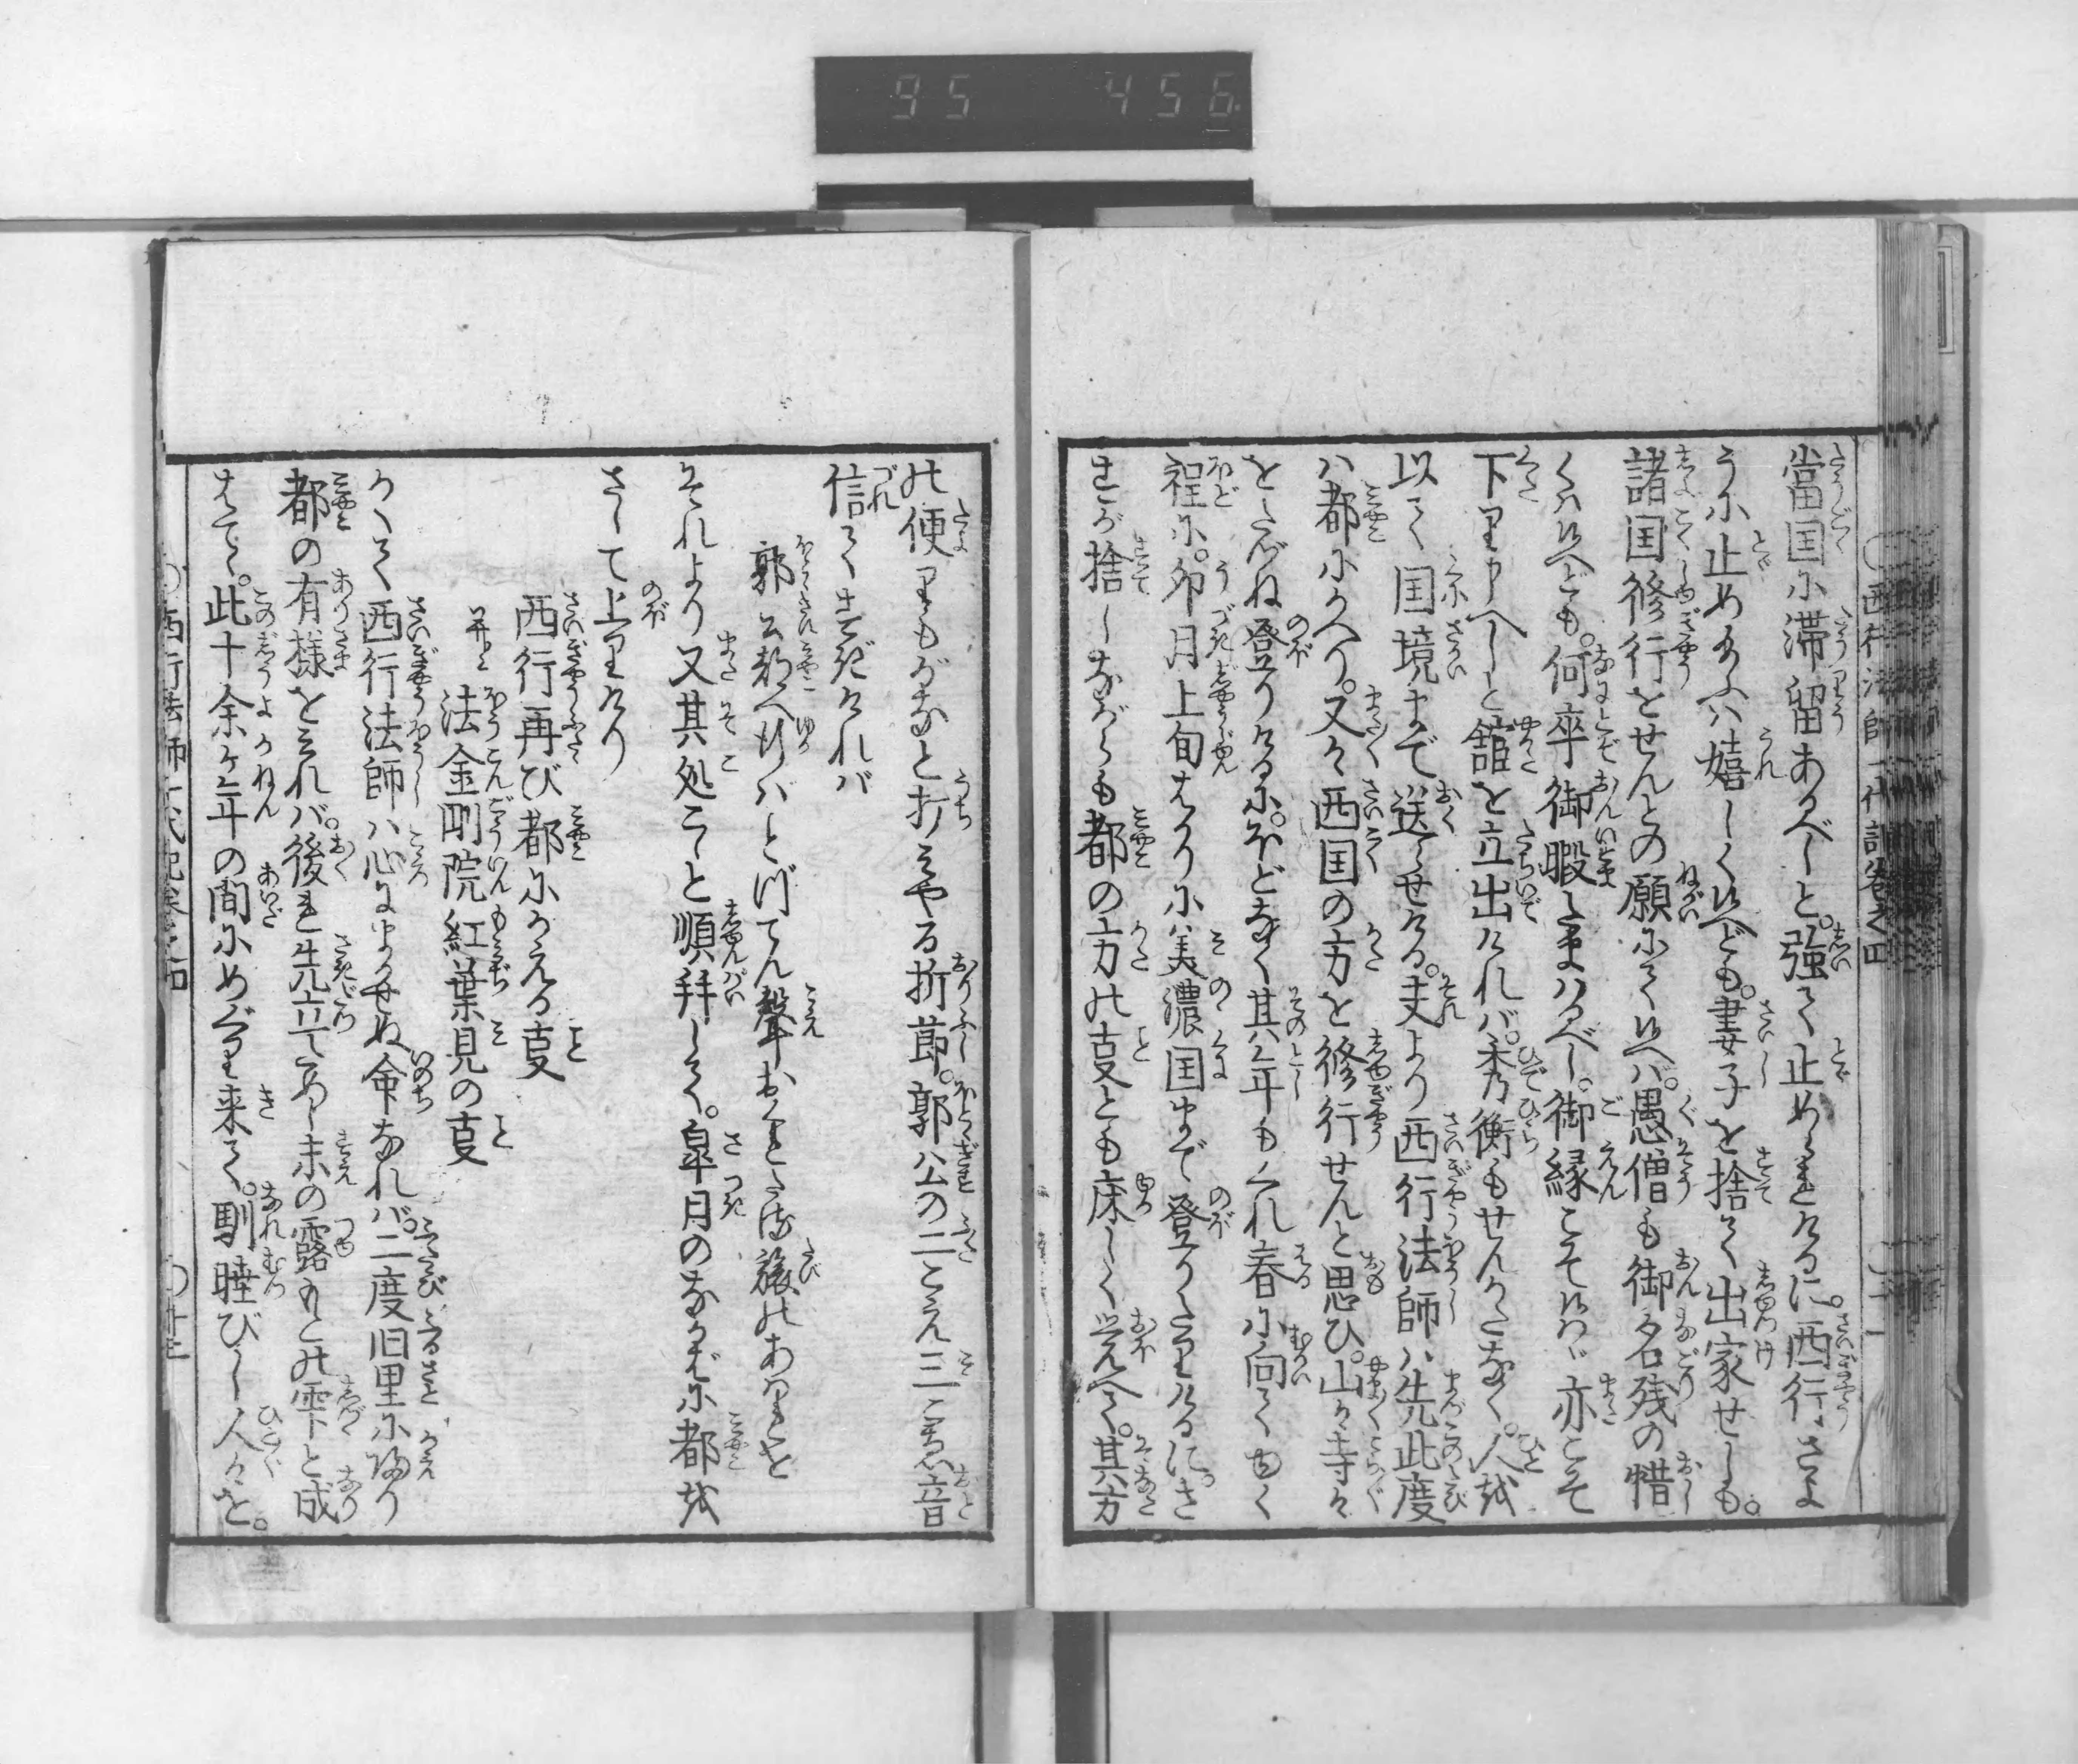 95 456
西行法師一代記巻之四
當国に滞留あるべしと。強て止められけるに。西行さま
うに止め給ふハ嬉しく候へども。妻子を捨て出家せしも。
諸国修行をせんとの願にて候へバ。愚僧も御名残の惜
くハ候へども。何卒御暇たまハるべし。御縁こそ候ハヾ亦こそ
下り申べしと舘を立出けれバ。秀衡もせんかたなく。人を
以て国境まで送らせける。夫より西行法師ハ先此度
ハ都にかへり。又々西国の方を修行せんと思ひ。山々寺々
をたづね登りけるに。ほどなく其年も くれ春に向て やく
程に。卯月上旬はかりに美濃国まで登りたりけるに。さ
すが捨しながらも都の方の事とも床しく覚へて。其方
の便りもがなと打みやる折節。郭公の二こえ三こゑ音
信てすぎけれバ
郭公都へ行バとびてん聲おくれたる旅のあはれを
それより又其処こゝと順拝して。皐月のなかばに都を
さして上りけり
西行再び都にかえる事
并に 法金剛院紅葉見の事
かくて西行法師ハ心にまかせぬ命なれバ。二度旧里に帰り
都の有様をみれバ。後れ先立てあらし末の露もとの雫と成
はてゝ。此十余ヶ年の間にめぐり来て。馴睦びし人々を。
西行法師一代記巻之四